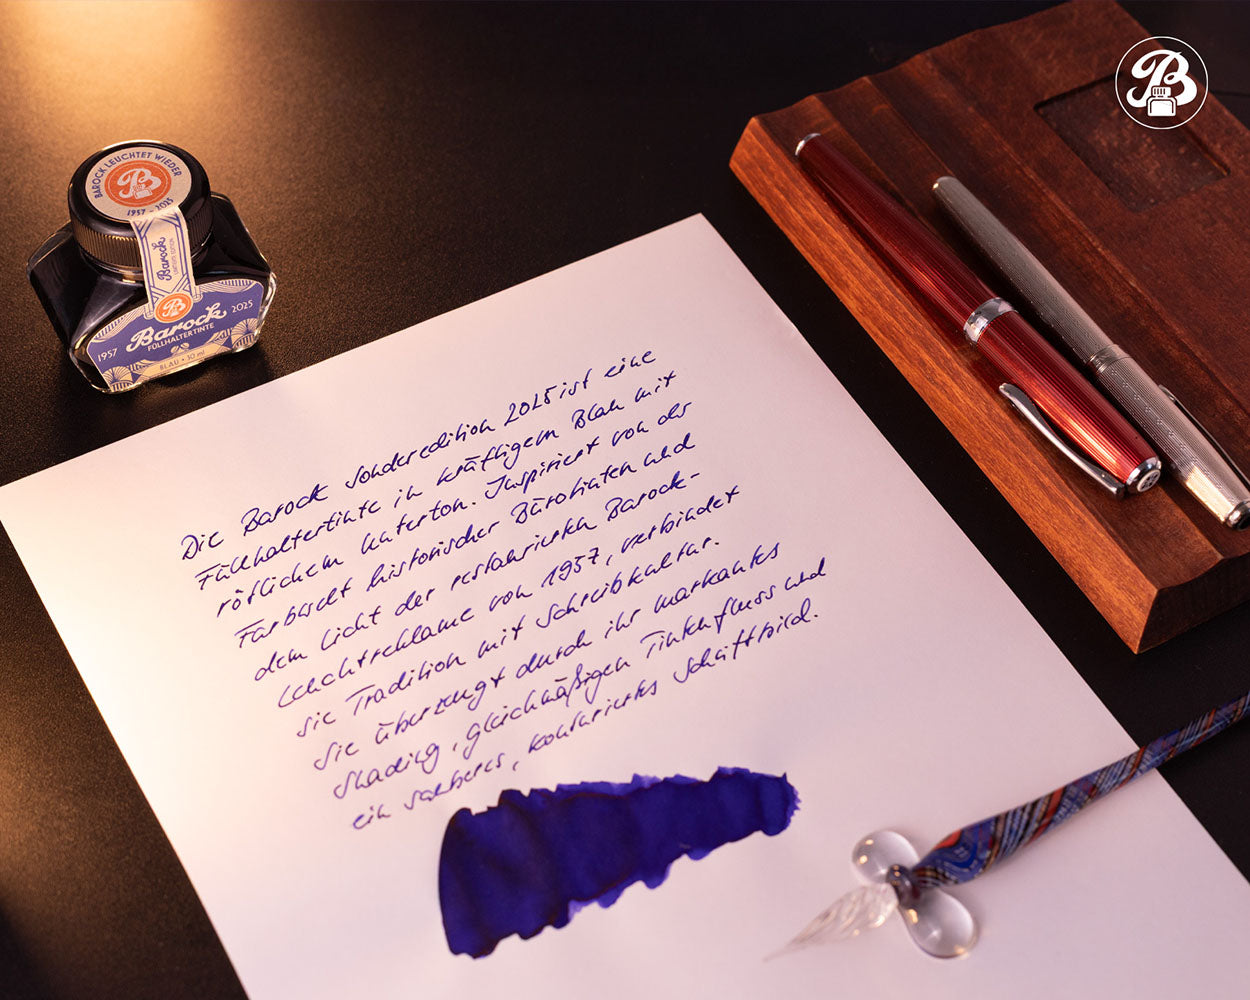 BAROCK LEUCHTET WIEDER
1957 - 2025
Barock
LIMITED EDITION
Barock
FÜLLHALTERTINTE
1957
2025
BLAU • 30 ml
Die Barock Sonderedition 2025 ist eine
Füllhaltertinte in kräftigem Blau mit
rötlichem Unterton. Inspiriert von der
Farbwelt historischer Bürotinten und
dem Licht der restaurierten Barock-
Leuchtreklame von 1957, verbindet
sie Tradition mit Schreibkultur.
Sie überzeugt durch ihr markantes
Shading, gleichmäßigen Tintenfluss und
ein sauberes, konturiertes Schriftbild.
B